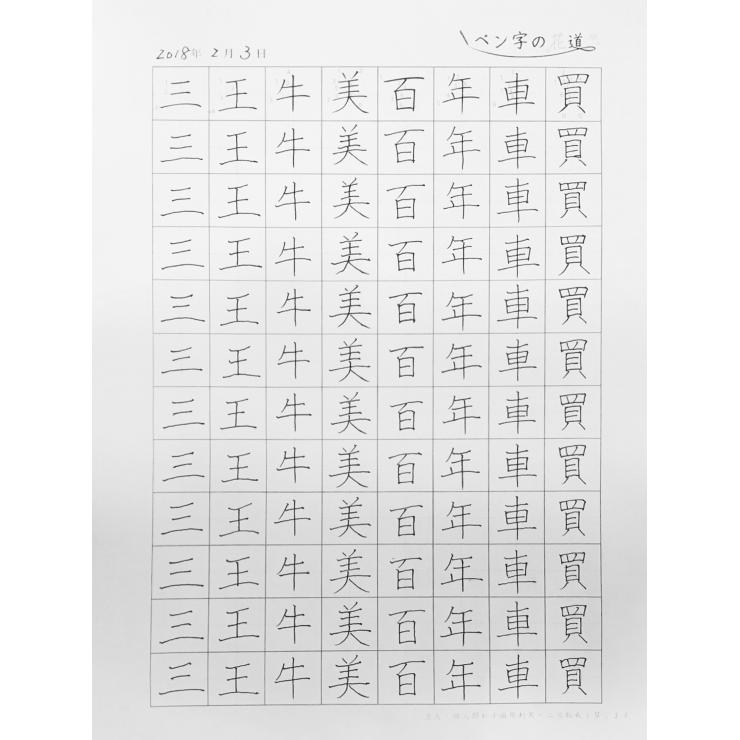 ペン字の花道
2018年 2月3日
三 王 牛 美 百 年 車 買
三 王 牛 美 百 年 車 買
三 王 牛 美 百 年 車 買
三 王 牛 美 百 年 車 買
三 王 牛 美 百 年 車 買
三 王 牛 美 百 年 車 買
三 王 牛 美 百 年 車 買
三 王 牛 美 百 年 車 買
三 王 牛 美 百 年 車 買
三 王 牛 美 百 年 車 買
三 王 牛 美 百 年 車 買
三 王 牛 美 百 年 車 買